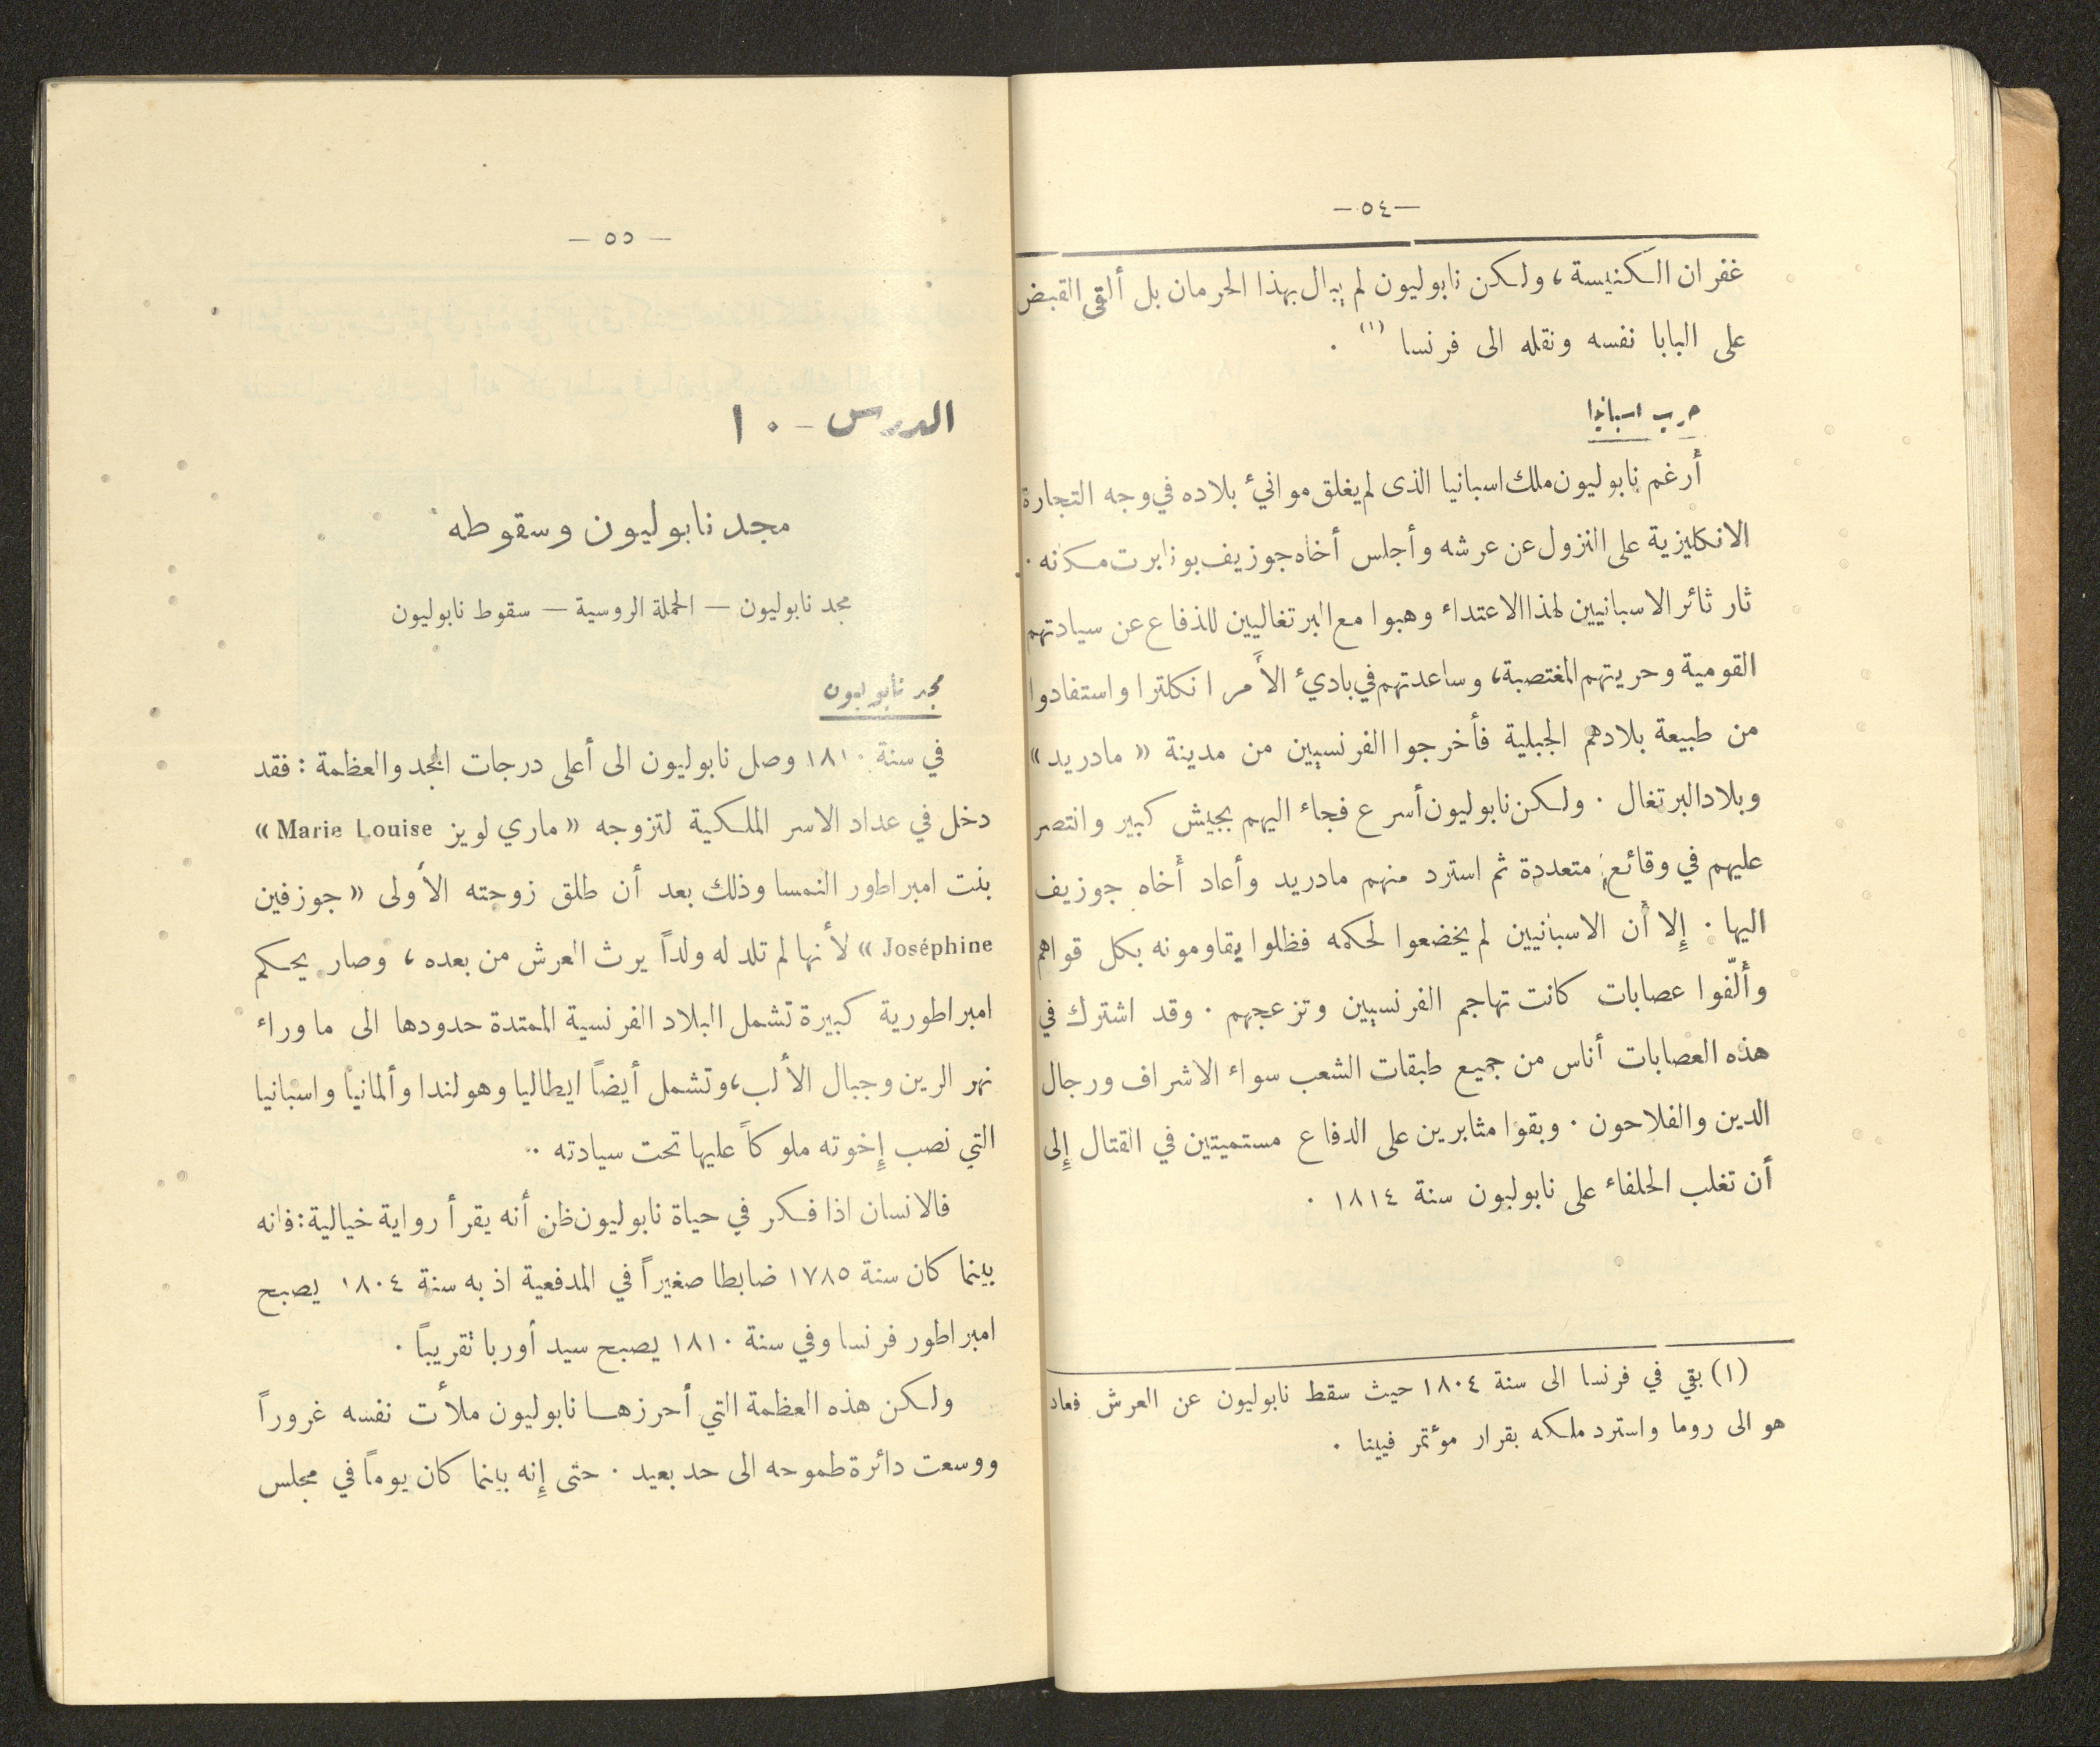 — ٥٤ —
غفران الكنيسة، ولكن نابوليون لم يبال بهذا الحرمان بل ألقى القبض
على البابا نفسه ونقله الى فرنسا (١) .
حرب اسبانيا
أرغم نابوليون ملك اسبانيا الذى لم يغلق موانيء بلاده في وجه التجارة
الانكليزية على النزول عن عرشه وأجلس أخاه جوزيف بونابرت مكانه .
ثار ثائر الاسبانيين لهذا الاعتداء وهبوا مع البرتغاليين للدفاع عن سيادتهم
القومية وحريتهم المغتصبة، وساعدتهم في باديء الأمر انكلترا واستفادوا
من طبيعة بلادهم الجبلية فأخرجوا الفرنسيين من مدينة « مادريد »
وبلاد البرتغال . ولكن نابوليون أسرع فجاء اليهم بجيش كبير وانتصر
عليهم في وقائع متعددة ثم استرد منهم مادريد وأعاد أخاه جوزيف
اليها . إلا أن الاسبانيين لم يخضعوا لحكمه فظلوا يقاومونه بكل قواهم
وألّفوا عصابات كانت تهاجم الفرنسيين وتزعجهم . وقد اشترك في
هذه العصابات أناس من جميع طبقات الشعب سواء الاشراف ورجال
الدين والفلاحون . وبقوا مثابرين على الدفاع مستميتين في القتال إلى
أن تغلب الحلفاء على نابوليون سنة ١٨١٤ .
(١) بقي في فرنسا الى سنة ١٨٠٤ حيث سقط نابوليون عن العرش فعاد
هو الى روما واسترد ملكه بقرار مؤتمر فيينا .
— ٥٥ —
الدرس - ١٠
مجد نابوليون وسقوطه
مجد نابوليون — الحملة الروسية — سقوط نابوليون
مجد نابوليون
في سنة ١٨١٠ وصل نابوليون الى أعلى درجات المجد والعظمة : فقد
دخل في عداد الاسر الملكية لتزوجه « ماري لويز Marie Louise »
بنت امبراطور النمسا وذلك بعد أن طلق زوجته الأولى « جوزفين
Joséphine » لأنها لم تلد له ولداً يرث العرش من بعده ، وصار يحكم
امبراطورية كبيرة تشمل البلاد الفرنسية الممتدة حدودها الى ما وراء
نهر الرين وجبال الألب، وتشمل أيضاً ايطاليا وهولندا وألمانيا واسبانيا
التي نصب إخوته ملوكاً عليها تحت سيادته .
فالانسان اذا فكر في حياة نابوليون ظن أنه يقرأ رواية خيالية : فانه
بينما كان سنة ١٧٨٥ ضابطا صغيراً في المدفعية اذ به سنة ١٨٠٤ يصبح
امبراطور فرنسا وفي سنة ١٨١٠ يصبح سيد أوربا تقريباً .
ولكن هذه العظمة التي أحرزها نابوليون ملأت نفسه غروراً
ووسعت دائرة طموحه الى حد بعيد . حتى إنه بينما كان يوماً في مجلس